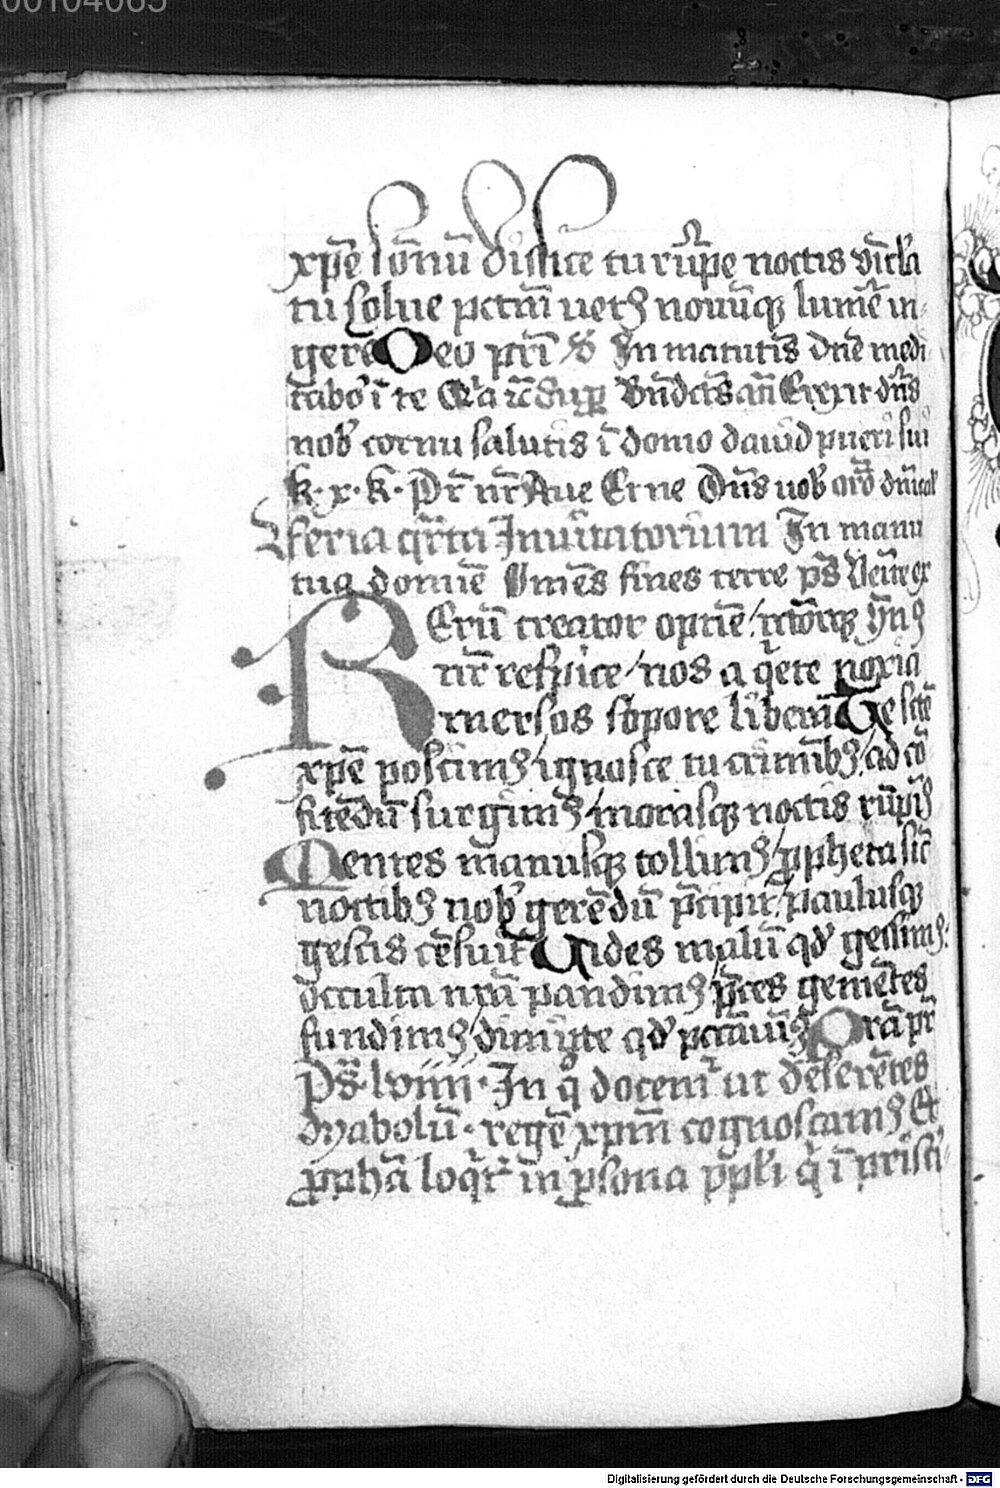 00104065
xp̄e sōnū dissice tu rūpe noctis vīcla
tu solue pctm̄ uetꝰ nouūqꝫ lumē in-
gerē Deo pr̄i In matutīs dn̄e medi
tabor ī te an̄ Erexit dn̄s
nob̄ cornu salutis ī domo dauid pueri sui
k. x. k. Pr̄ nr̄ Aue Dn̄s uob̄ dn̄ical
feria qr̄ta Inuitatorium In manu
tua domīe Om̄es fines terre ps̄ Venite ex
Rerū creator optīe rectorqꝫ
nr̄ respice nos a q̇ete noxia
mersos sopore liberā Te sc̄te
xp̄e poscimꝰ ignosce tu crimībꝫ ad cō
fitēdū surgimꝰ morasqꝫ noctis rūpīꝰ
Mentes manusqꝫ tollimꝰ ꝓpheta sic̄
noctibꝫ nob̄ gerēdū p̄cipit paulusqꝫ
gestis cēsuit Uides malū qd̄ gessimꝰ
occulta nr̄a pandimꝰ p̄ces gemētes
fundimꝰ dimitte qd̄ pccāuīꝰ Prā pr̄
Ps̄ lviiii. In q̊ docemr̄ ut deserētes
dyabolū. regē xpm̄ cognoscamꝰ Et
ꝓphā loq̇tr̄ in ꝑsona ppl̄i q̇ ī prisci-
Digitalisierung gefördert durch die Deutsche Forschungsgemeinschaft - DFG